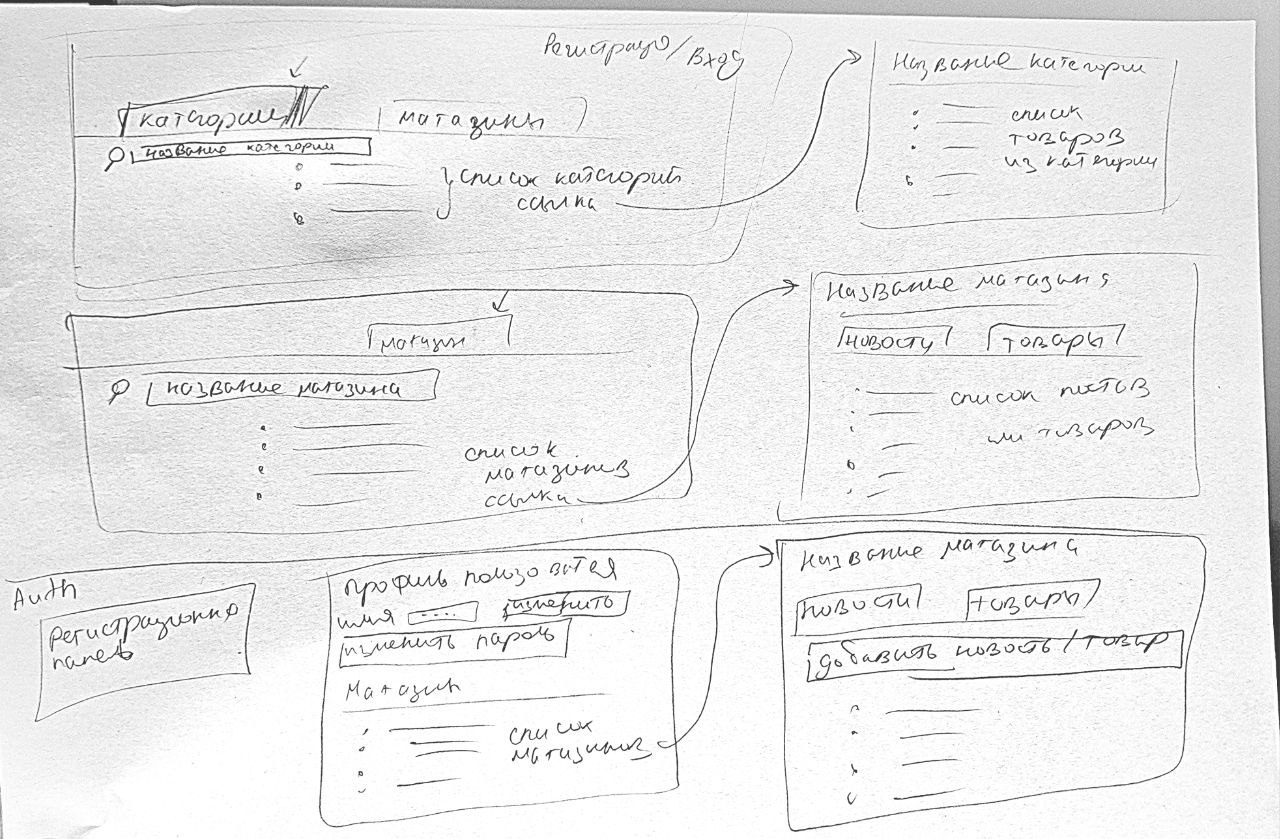 Регистрация/Вход
категории
магазины
название категории
список категорий
ссылка
Название категории
список
товаров
из категории
магазин
название магазина
список
магазинов
ссылка
Название магазина
новости
товары
список постов
или товаров
Auth
Регистрационная
панель
профиль пользователя
имя
.....
изменить
изменить пароль
Магазин
список
магазинов
название магазина
новости
товары
добавить новость/товар